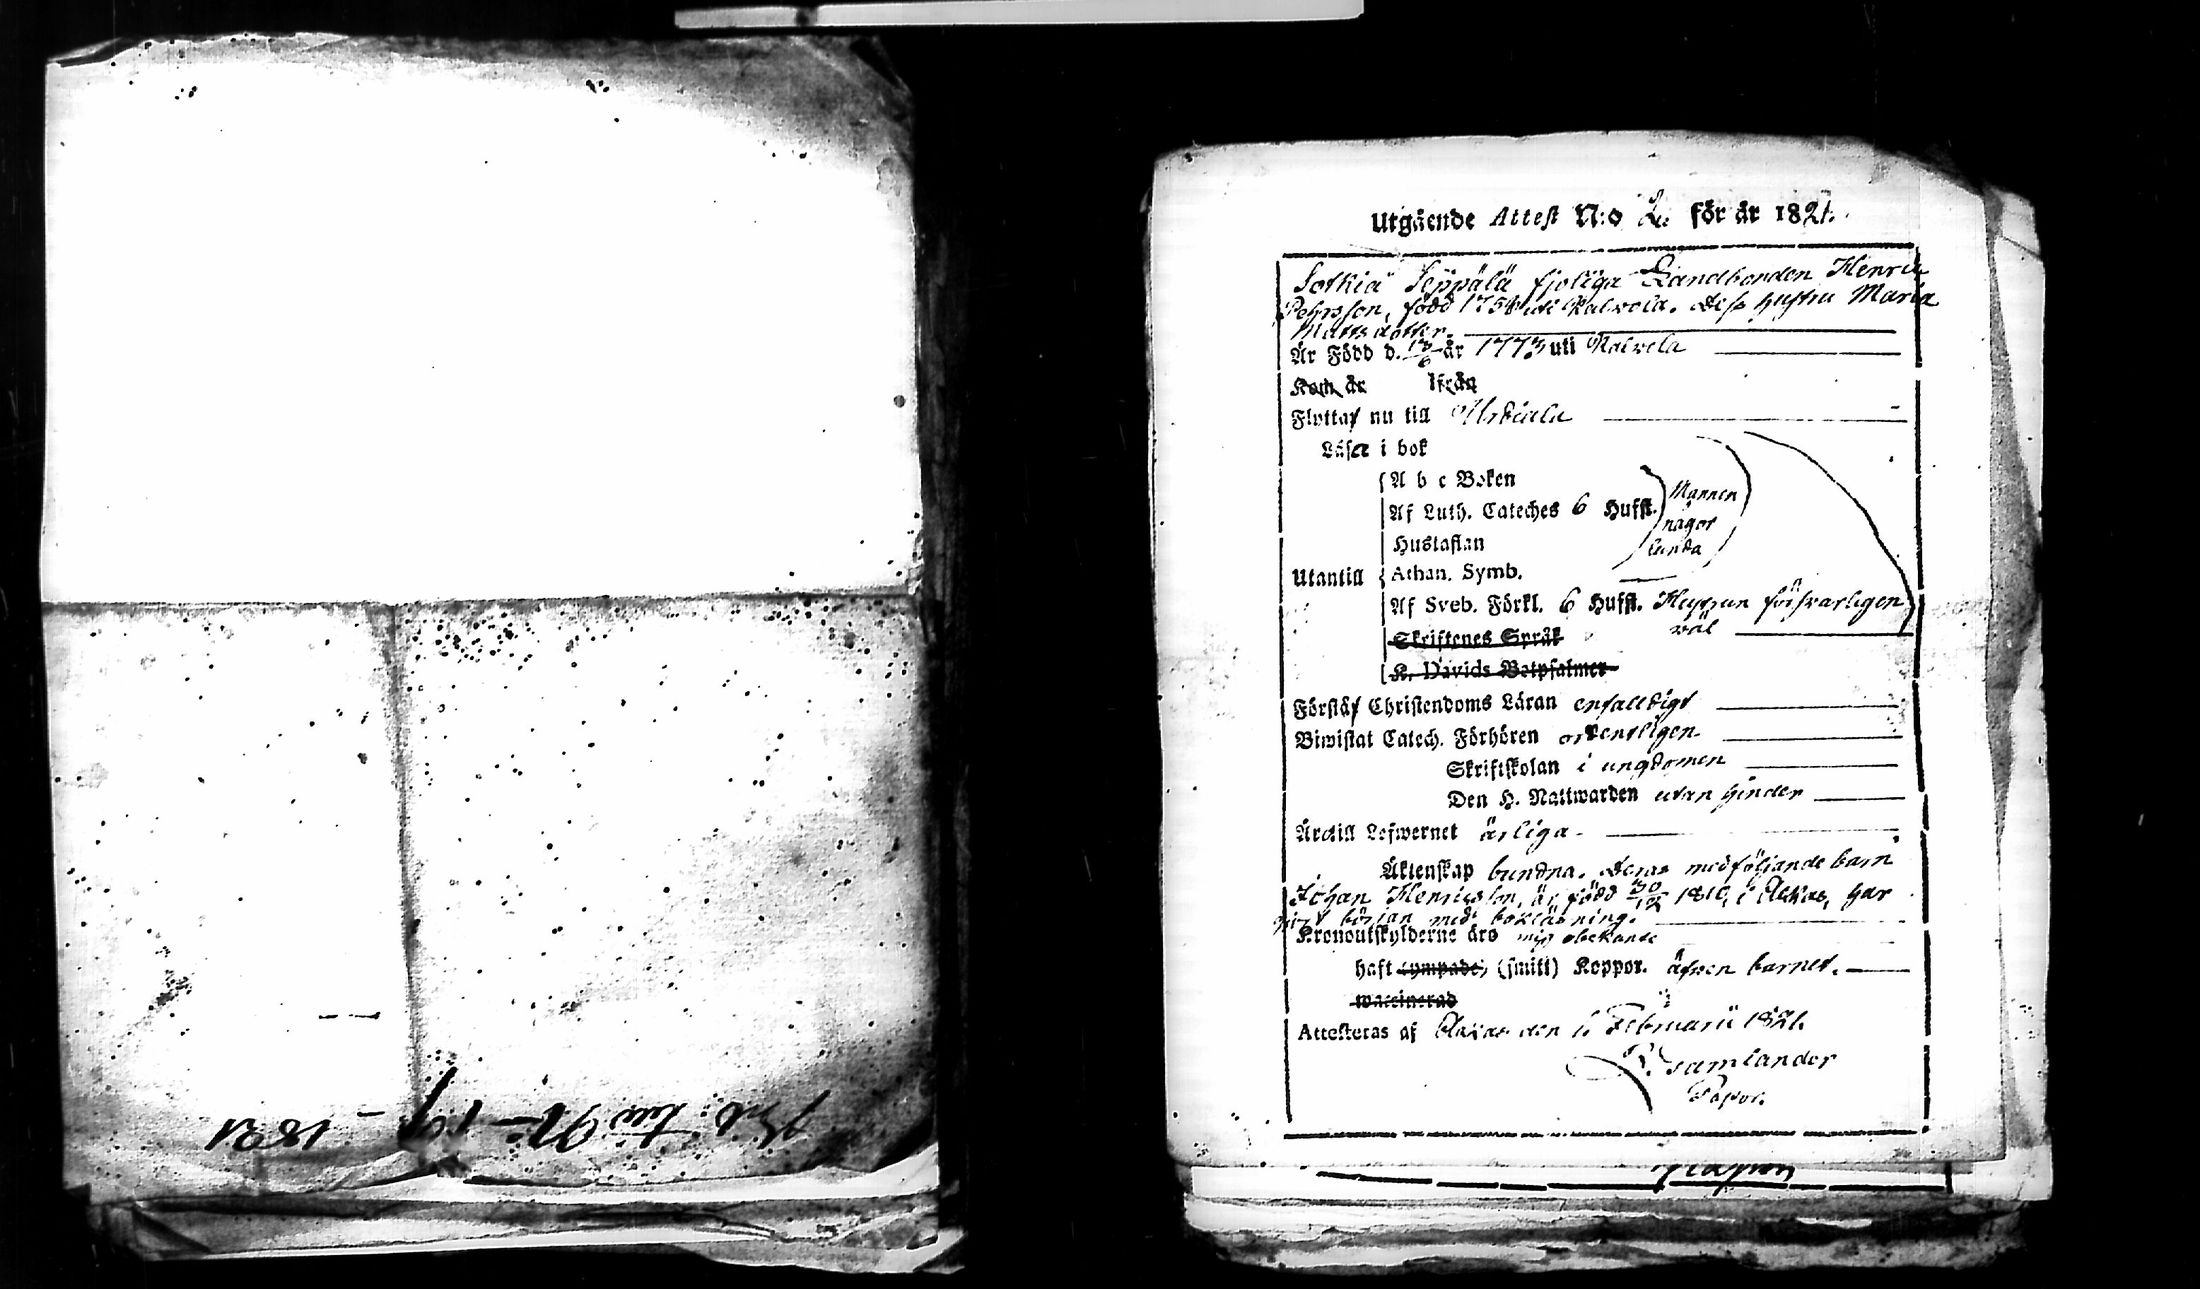 1821
Utgående Attest N:o 2. för år 1821.
Sotkia Seppälä fjoliga Landbonden Henric
Pehrsson, född 1758 uti Kalvola. Dess hustru Maria
Mattsdotter.
Är Född d. år 1773 uti Kalvola
Kom år ifrån
Flyttaf nu till Urdiala
Läsa i bok
A b c Boken
Af Luth. Cateches 6 Hufst. Mannen
någor
lunda
Hustaflan
Utantill Athan. Symb.
Af Sveb. Förkl. 6 Hufst. Hustrun försvarligen
väl
Skriftenes Språk
K. Davids Botpsalmer
Förstå Christendoms Läran enfalldigt
Biwistat Catech. Förhören ordentligen
Skriftskolan i ungdomen
Den H. Nattwarden utan hinder
Äro till Lefwernet ärliga
Äktenskap bundna. Deras medföljande barn
Johan Henricsson, är född 30/12 1810, i Akkas, har
gjort början med bokläsning.
Kronoutskylderne äro mig obekante
haft (ympade) (smitt) Koppor. äfven barnet.
waccinerad
Attesteras af Akkas den 6 Februarii 1821.
Gamlander
Pastor.